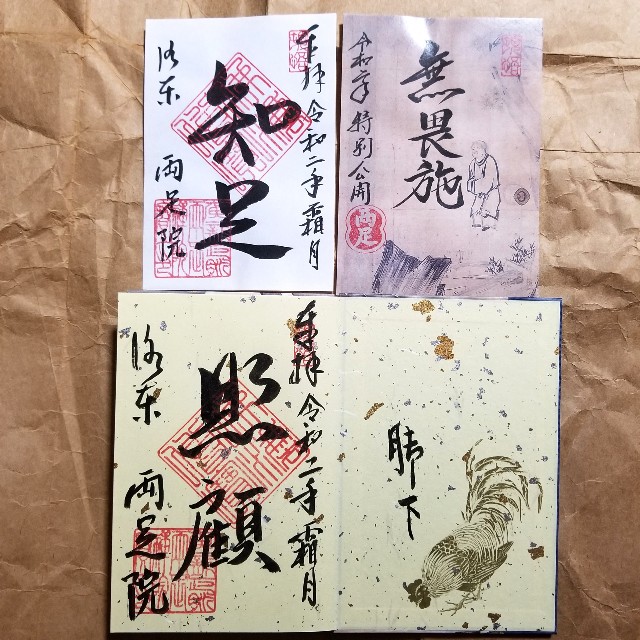 奉拝 令和二年 霜月
知足
洛東 両足院
無畏施
令和二年 特別公開
両足
脚下
奉拝 令和二年 霜月
照顧
洛東 両足院